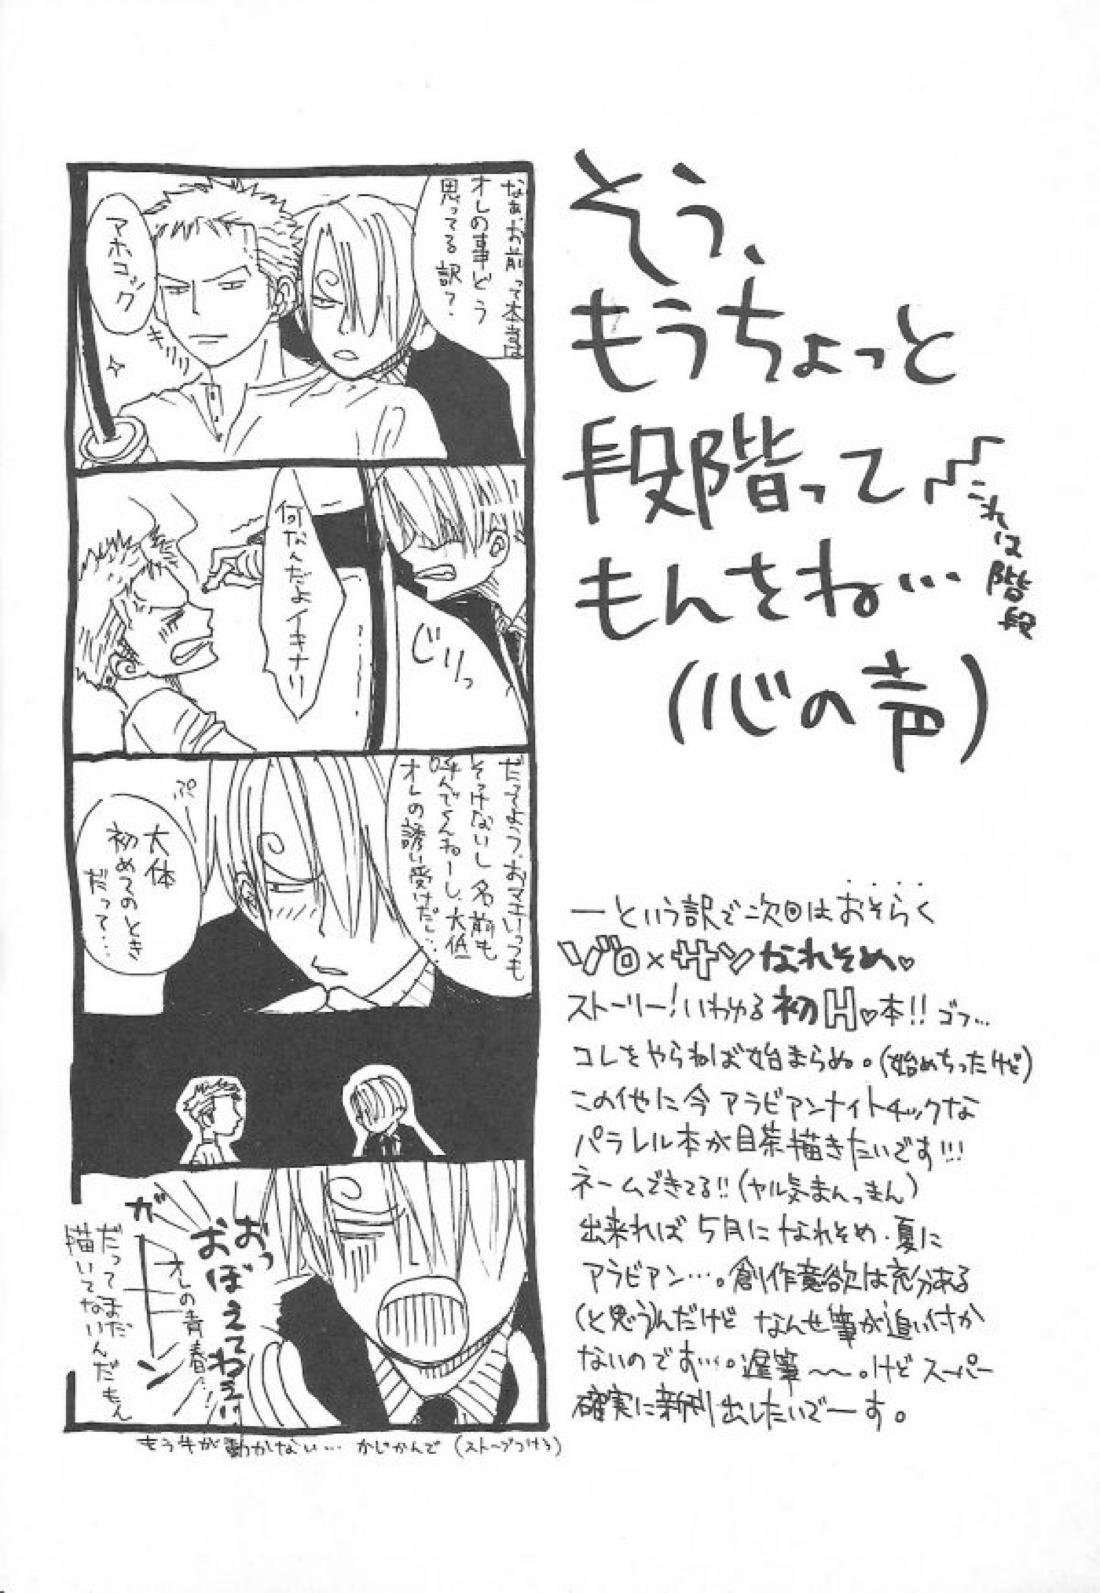 そう、
もうちょっと
段階って
もんをね…
(心の声)
これは
階段
なぁ、お前って本当は
オレの事どう
思ってる訳?
アホコック
キリリッ
何なんだよイキナリ
じりっ
だってよう、おマエいっつも
そっけないし名前も
呼んでくんねーし、大低
オレの誘い受けだし…
ぷ
大体
初めてのとき
だって…
おっ
おぼえてねぇ!!
オレの青春…!
ガーン
だってまだ
描いてないんだもん
もう手が動かない… かじかんで (ストーブつけろ)
―という訳で次回はおそらく
ゾロ×サンなれそめ♥
ストーリー!いわゆる初H♥本!! ゴフ…
コレをやらねば始まらぬ。(始めちったけど)
この他に今アラビアンナイトチックな
パラレル本が目茶描きたいです!!!
ネームできてる!!(ヤル気まんっまん)
出来れば5月になれそめ・夏に
アラビアン…。創作意欲は充分ある
(と思う)んだけど なんせ筆が追い付か
ないのです…。遅筆〜〜。けどスーパー
確実に新刊出したいでーす。